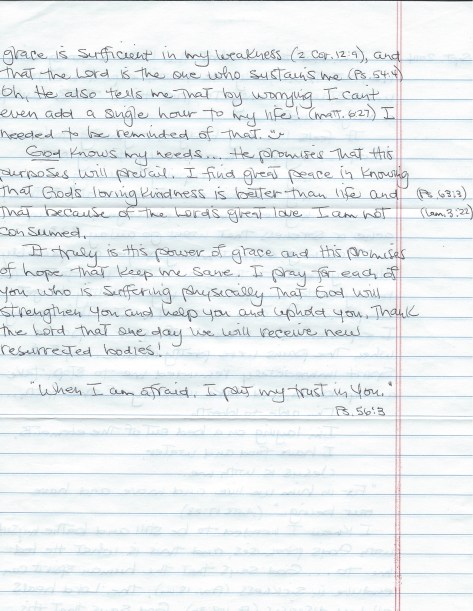 grace is sufficient in my weakness (2 Cor. 12:9), and
that the Lord is the one who sustains me (Ps. 54:4)
Oh, He also tells me that by worrying I can't
even add a single hour to my life! (Matt. 6:27) I
needed to be reminded of that.
God knows my needs... He promises that His
purposes will prevail. I find great peace in knowing
that God's loving kindness is better than life and (Ps. 63:3)
that because of the Lord's great love I am not (Lam. 3:22)
consumed.
It truly is His power of grace and His promises
of hope that keep me sane. I pray for each of
you who is suffering physically that God will
strengthen you and help you and uphold you. Thank
the Lord that one day we will receive new
resurrected bodies!
"When I am afraid, I put my trust in You."
Ps. 56:3